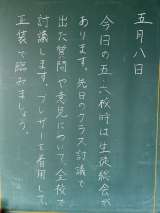 五月八日
今日の五・六校時は生徒総会が
あります。先日のクラス討議で
出た質問や意見について、全校で
討議します。ブレザーを着用して、
正装で臨みましょう。